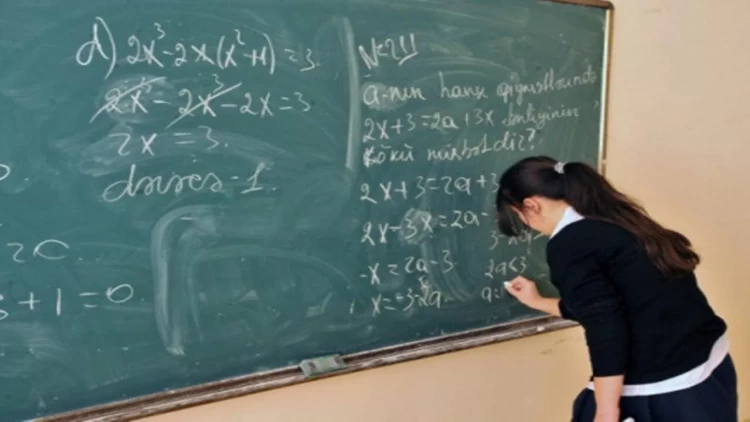 d) 2x³-2x(x²+1)=3
2x³-2x³-2x=3
2x=3.
=0
+1=0
№211
a-nın hansı qiymətlərində
2x+3=2a+3x tənliyinin
kökü müsbətdir?
2x+3=2a+3
2x-3x=2a-
-x=2a-3
x=3-2a
2a<3
a